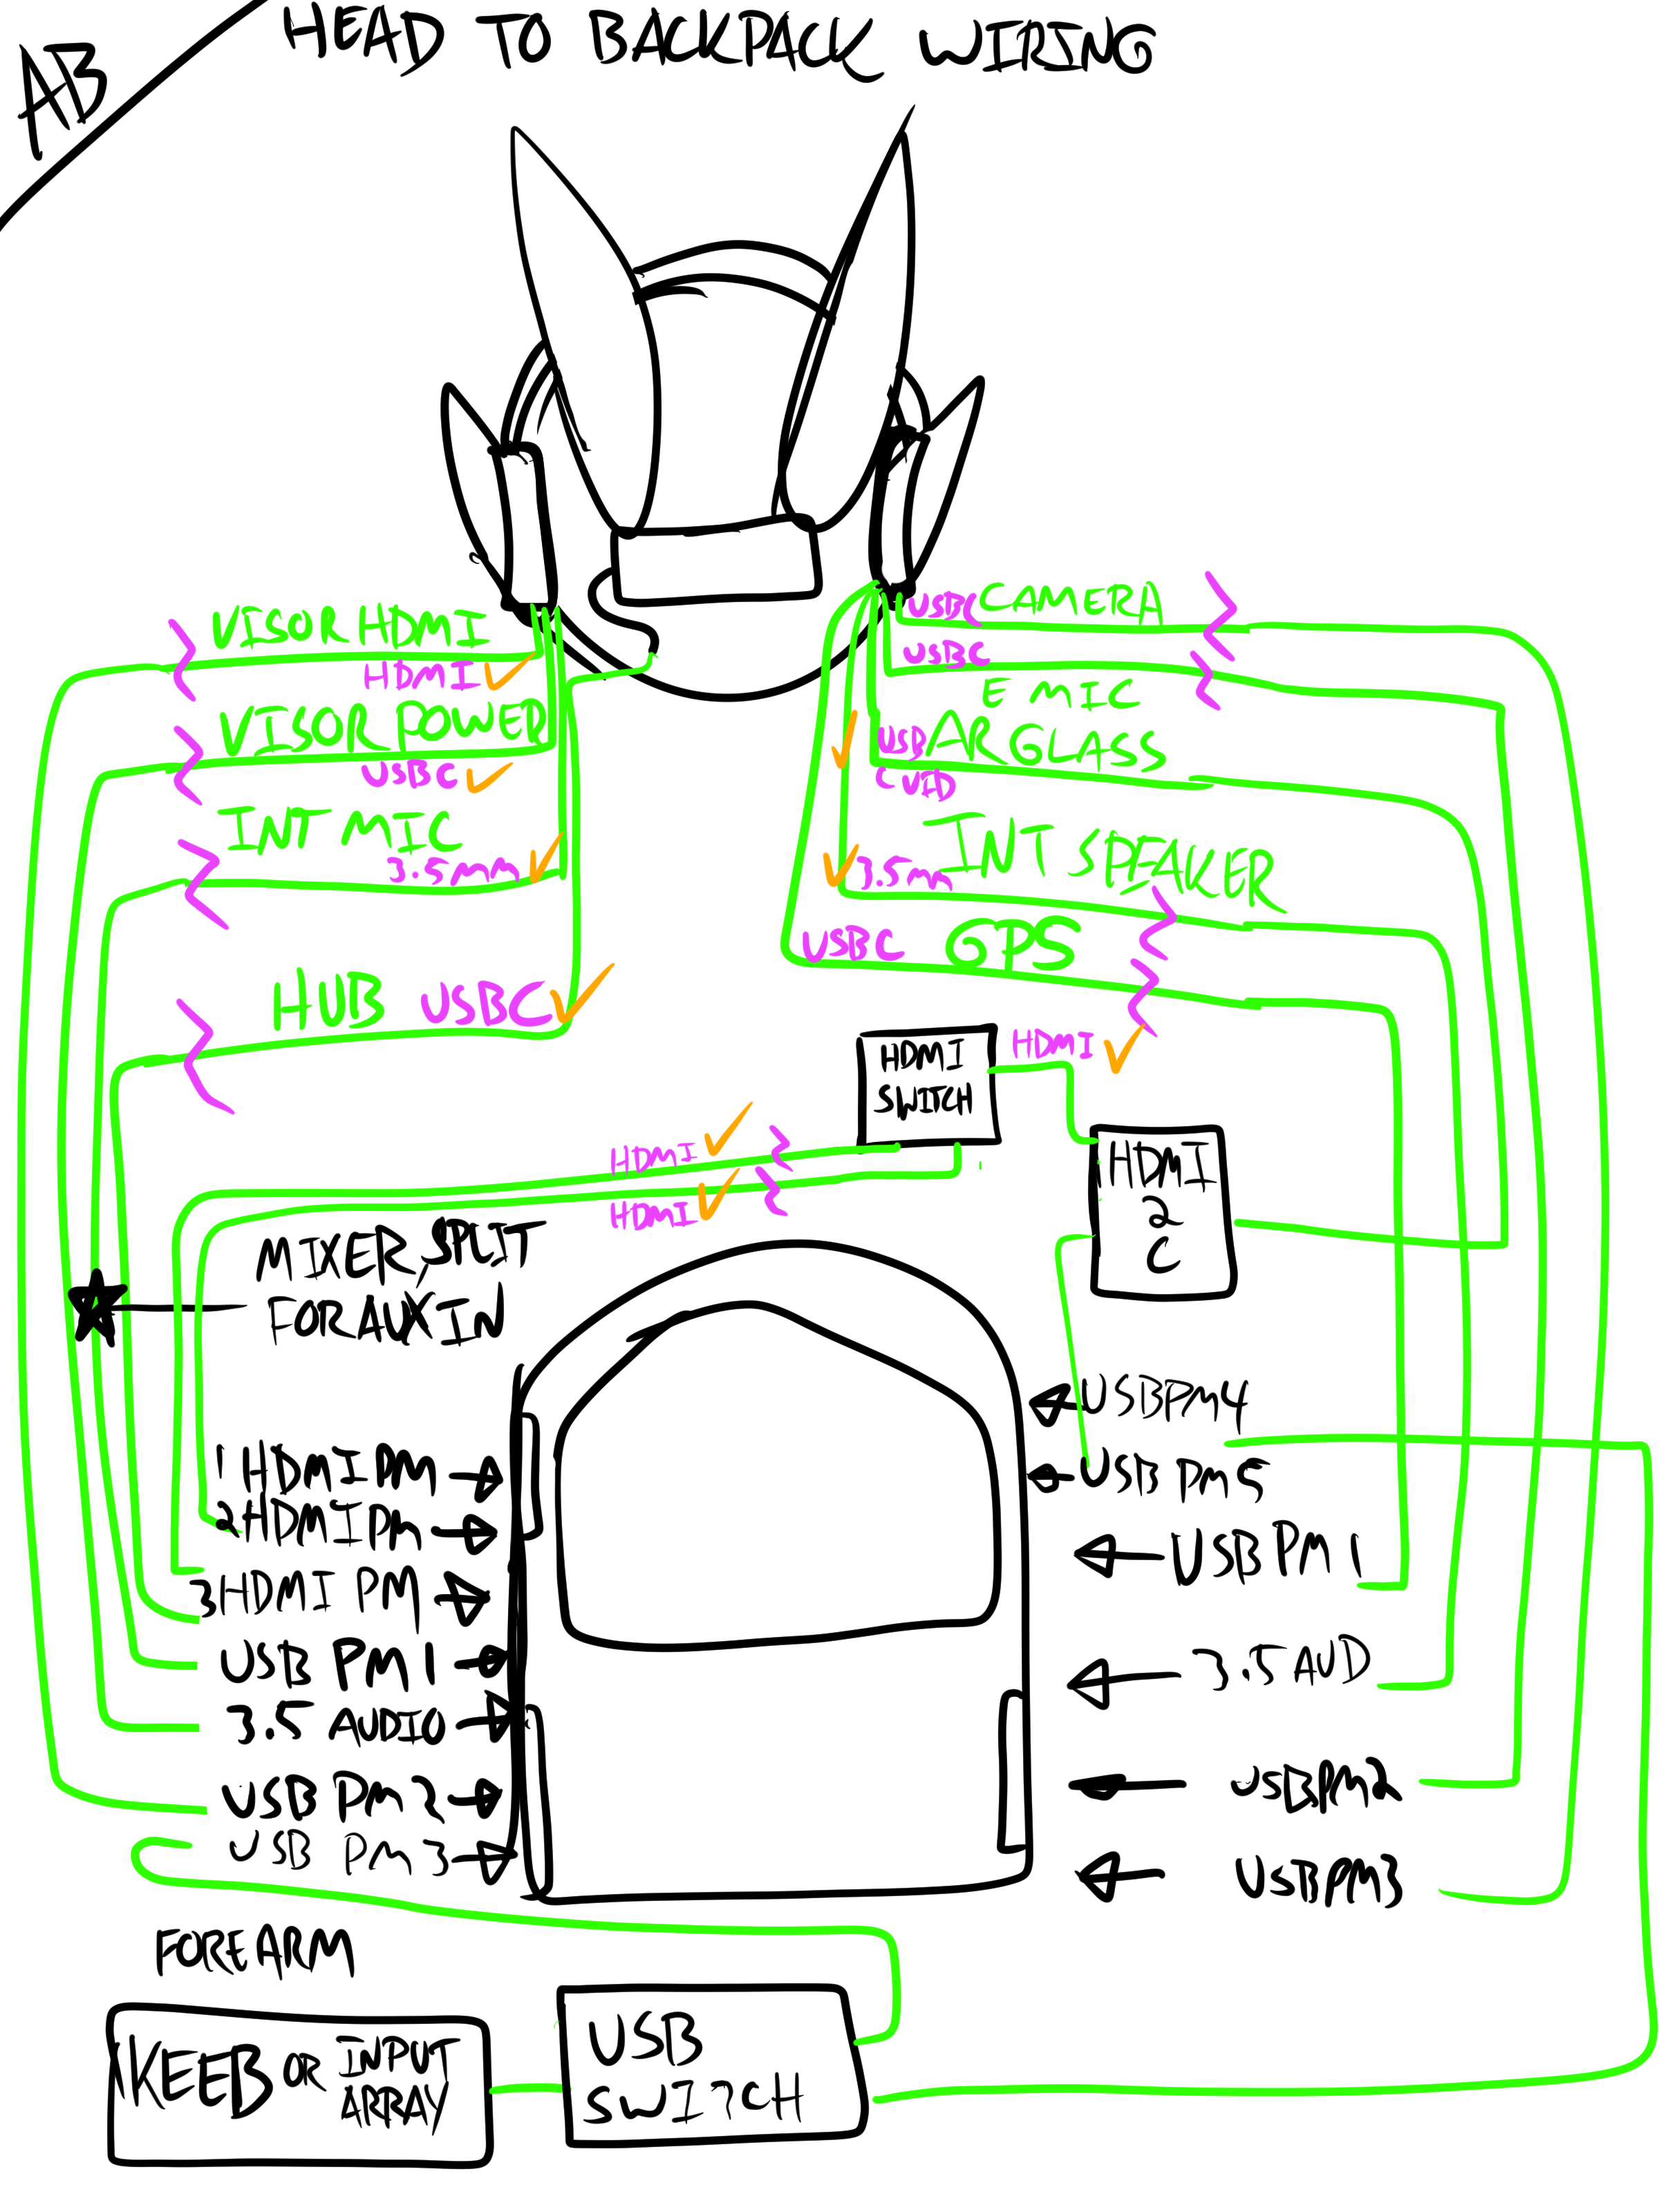 HEAD TO BACKPACK WIRING
VISOR HDMI
HDMI
VISOR POWER
USBC
INT MIC
3.5mm
HUB USBC
USBC CAMERA
USBC
E MIC
USB ARGLASS
C VID
INT SPEAKER
3.5mm
USBC GPS
HDMI
SWITCH
HDMI
HDMI
HDMI
HDMI
2
C
MIXER, SPLIT
FOR AUX IN
1 HDMI PM
2 HDMI PM
3 HDMI PM
USB PM 1
3.5 AUDIO
USB PM 2
USB PM 3
USB PM 4
USB PM 5
USB PM 1
3.5 AUD
USB PM 2
USB PM 3
FOREARM
KEEB OR INPUT
ARRAY
USB
SWITCH